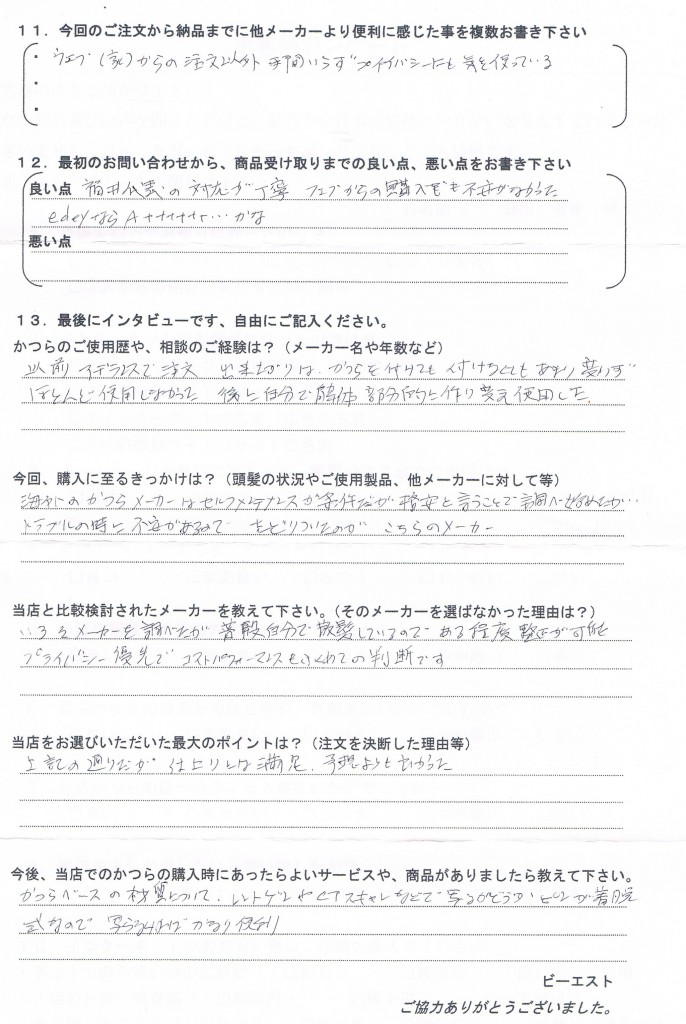 11．今回のご注文から納品までに他メーカーより便利に感じた事を複数お書き下さい
・ウェブ(家)からの注文以外 手間いらず プライバシーにも気を使っている
・
・
12．最初のお問い合わせから、商品受け取りまでの良い点、悪い点をお書き下さい
良い点 の対応が丁寧 ウェブからの購入でも不安がなかった
ならA++++++…かな
悪い点
13．最後にインタビューです、自由にご記入ください。
かつらのご使用歴や、相談のご経験は？（メーカー名や年数など）
以前 で注文 出来上がりは、かつらを付けても付けなくてもあまり変わらず
ほとんど使用しなかった 後に自分で解体 部分的に作り変え使用した。
今回、購入に至るきっかけは？（頭髪の状況やご使用製品、他メーカーに対して等）
海外のかつらメーカーはセルフメンテナンスが条件だが 格安と言うことで調べ始めたが…
トラブルの時に不安があるので たどりついたのが こちらのメーカー
当店と比較検討されたメーカーを教えて下さい。（そのメーカーを選ばなかった理由は？）
メーカーを調べたが 普段自分で しているので ある程度 が可能
プライバシー優先で コストパフォーマンスも の判断です
当店をお選びいただいた最大のポイントは？（注文を決断した理由等）
上記の通りだが 仕上りには満足、予想よりも良かった
今後、当店でのかつらの購入時にあったらよいサービスや、商品がありましたら教えて下さい。
かつらベースの材質について、レントゲンやCTスキャンなどで写るかどうか ピンが着脱
式なので 写らなければかなり便利
ビーエスト
ご協力ありがとうございました。